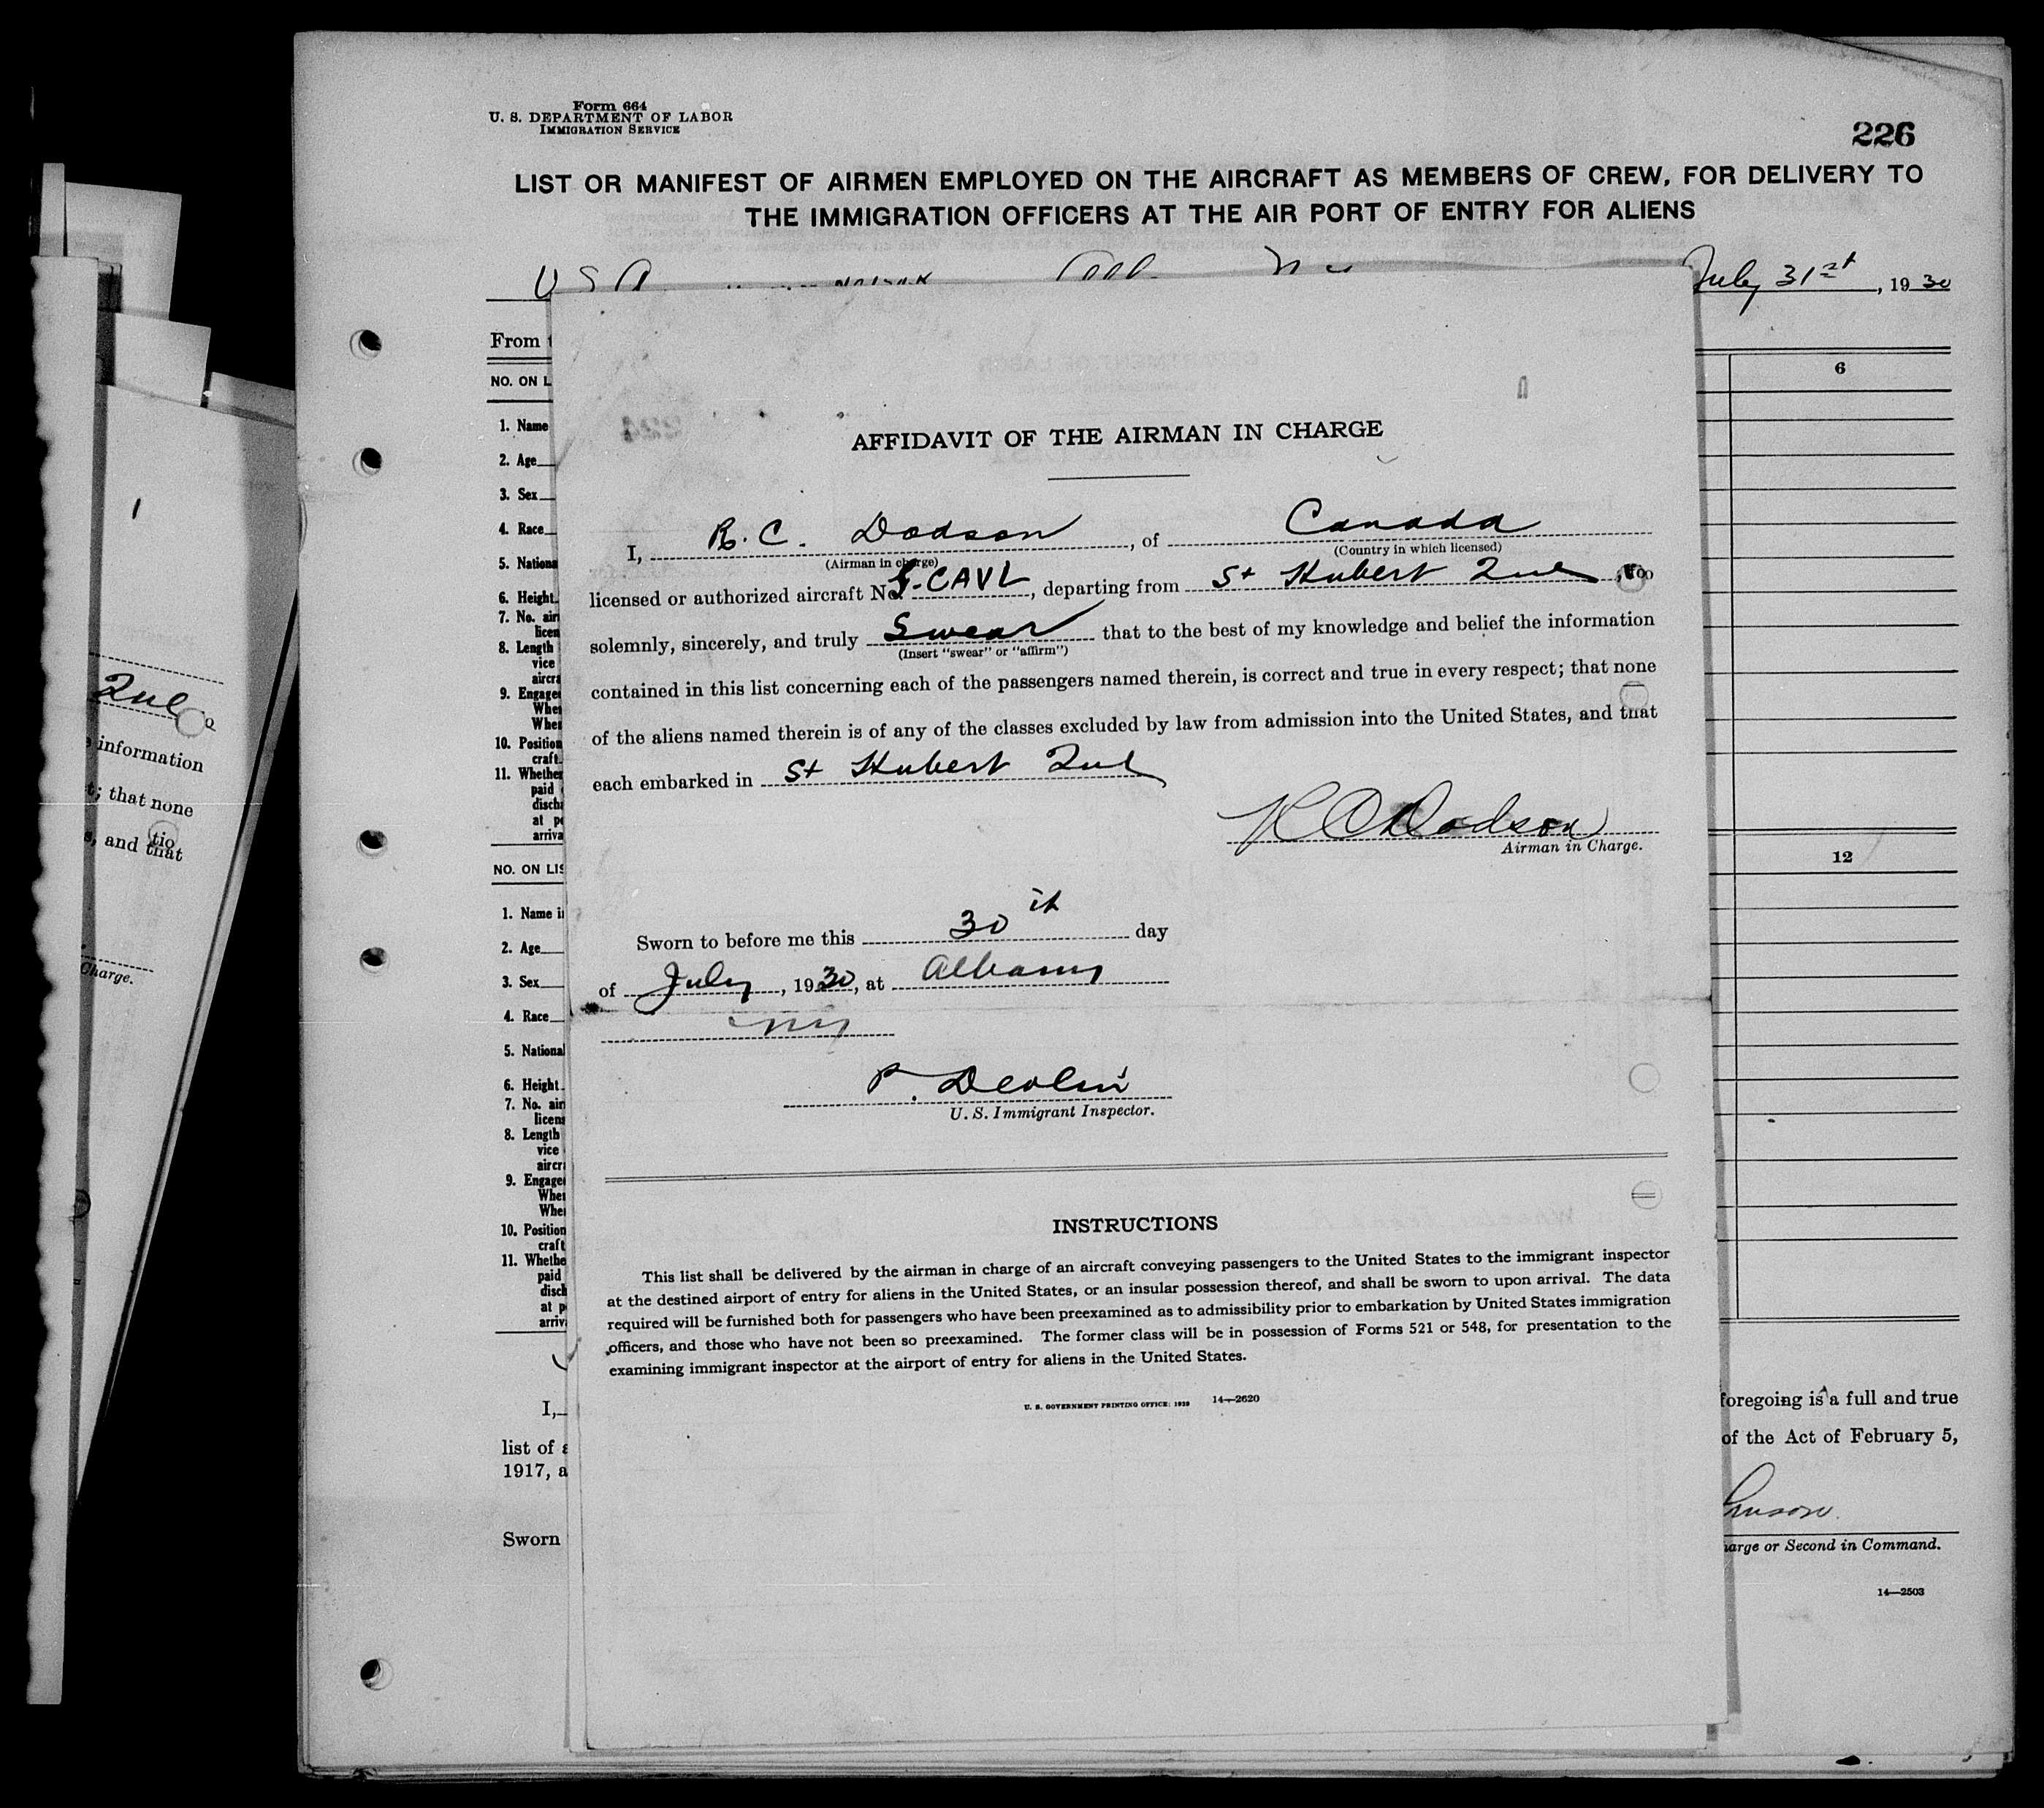 Form 664
U. S. DEPARTMENT OF LABOR
IMMIGRATION SERVICE
226
LIST OR MANIFEST OF AIRMEN EMPLOYED ON THE AIRCRAFT AS MEMBERS OF CREW, FOR DELIVERY TO
THE IMMIGRATION OFFICERS AT THE AIR PORT OF ENTRY FOR ALIENS
July 31st, 1930
From
NO. ON L
6
1. Name
2. Age
3. Sex
4. Race
5. Nationa
6. Height
7. No. air
licen
8. Length
vice
aircra
9. Engage
Whe
Wher
10. Position
craft
11. Whether
paid
disch
at p
arriva
NO. ON LIS
12
1. Name i
2. Age
3. Sex
4. Race
5. National
6. Height
7. No. air
licens
8. Length
vice
aircr
9. Engage
Whe
Whe
10. Position
craft
11. Whethe
paid
disch
at p
arriv
I,
list of a
1917, a
Sworn
AFFIDAVIT OF THE AIRMAN IN CHARGE
I, R. C. Dodson, of Canada
(Airman in charge) (Country in which licensed)
licensed or authorized aircraft No. G.CAVL, departing from St Hubert Que, do
solemnly, sincerely, and truly Swear that to the best of my knowledge and belief the information
(Insert "swear" or "affirm")
contained in this list concerning each of the passengers named therein, is correct and true in every respect; that none
of the aliens named therein is of any of the classes excluded by law from admission into the United States, and that
each embarked in St Hubert Que
R C Dodson
Airman in Charge.
Sworn to before me this 30th day
of July, 1930, at Albany
NY
P. Devlin
U. S. Immigrant Inspector.
INSTRUCTIONS
This list shall be delivered by the airman in charge of an aircraft conveying passengers to the United States to the immigrant inspector
at the destined airport of entry for aliens in the United States, or an insular possession thereof, and shall be sworn to upon arrival. The data
required will be furnished both for passengers who have been preexamined as to admissibility prior to embarkation by United States immigration
officers, and those who have not been so preexamined. The former class will be in possession of Forms 521 or 548, for presentation to the
examining immigrant inspector at the airport of entry for aliens in the United States.
U. S. GOVERNMENT PRINTING OFFICE: 1929 14—2620
foregoing is a full and true
of the Act of February 5,
harge or Second in Command.
14—2503
Que
information
t; that none
s, and that
Charge.